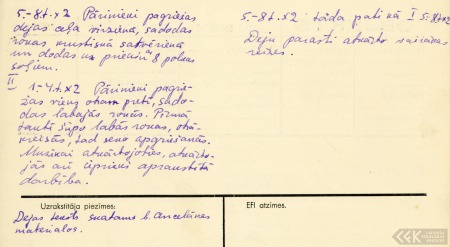 5.-8.t. x2 Pārinieki pagriežas
dejas ceļa virzienā, sadodas
rokās, krustiskā satvērienā
un dodas uz priekšu 8 polkas
soļiem.
II
1.-4.t. x2 Pārinieki pagrie-
žas viens otram pretī, sado-
das labajās rokās. Pirmā
taktī šūpo labās rokas, otrā
kreisās, tad seko apgriešanās.
Muzikai atkārtojoties, atkārto-
jās arī iepriekš aprakstītā
darbība.
5.-8.t. x2 tāda pati kā I 5.-8.t. x2
Deju parasti atkārto vairākas
reizes.
Uzrakstītāja piezīmes:
Dejas teksts skatāms b. Ancelānes
materialos.
EFI atzīmes.